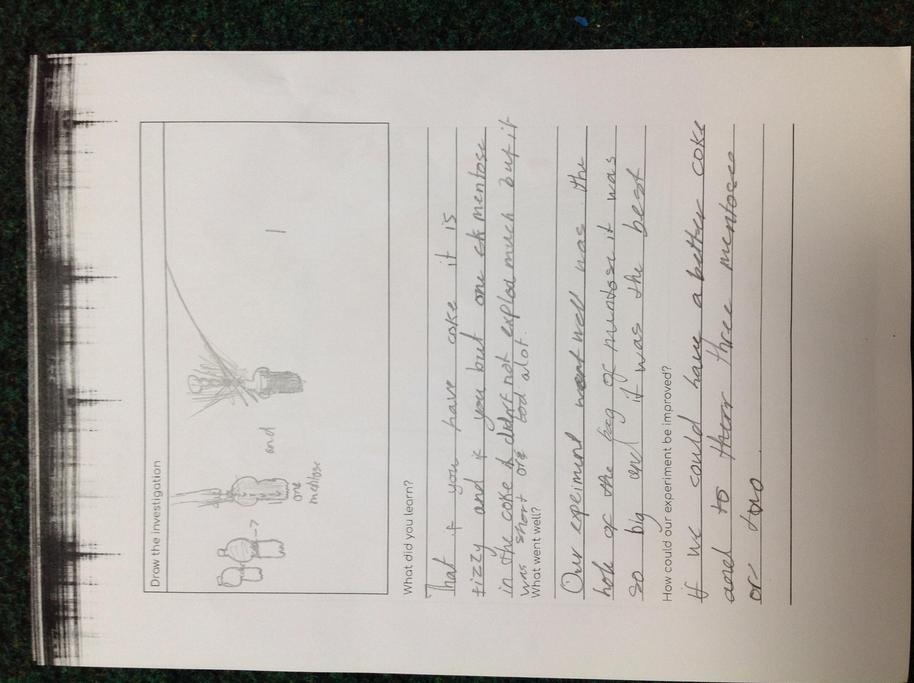 Draw the investigation
one
mentose
and
What did you learn?
That if you have coke it is
fizzy and if you but one mentose
in the coke it didn't not explod much but it
was short and bad alot.
What went well?
Our experiment went well was the
hole of the bag of mentose it was
so big and it was the best
How could our experiment be improved?
If we could have a better coke
and to there three mentoses
or two.